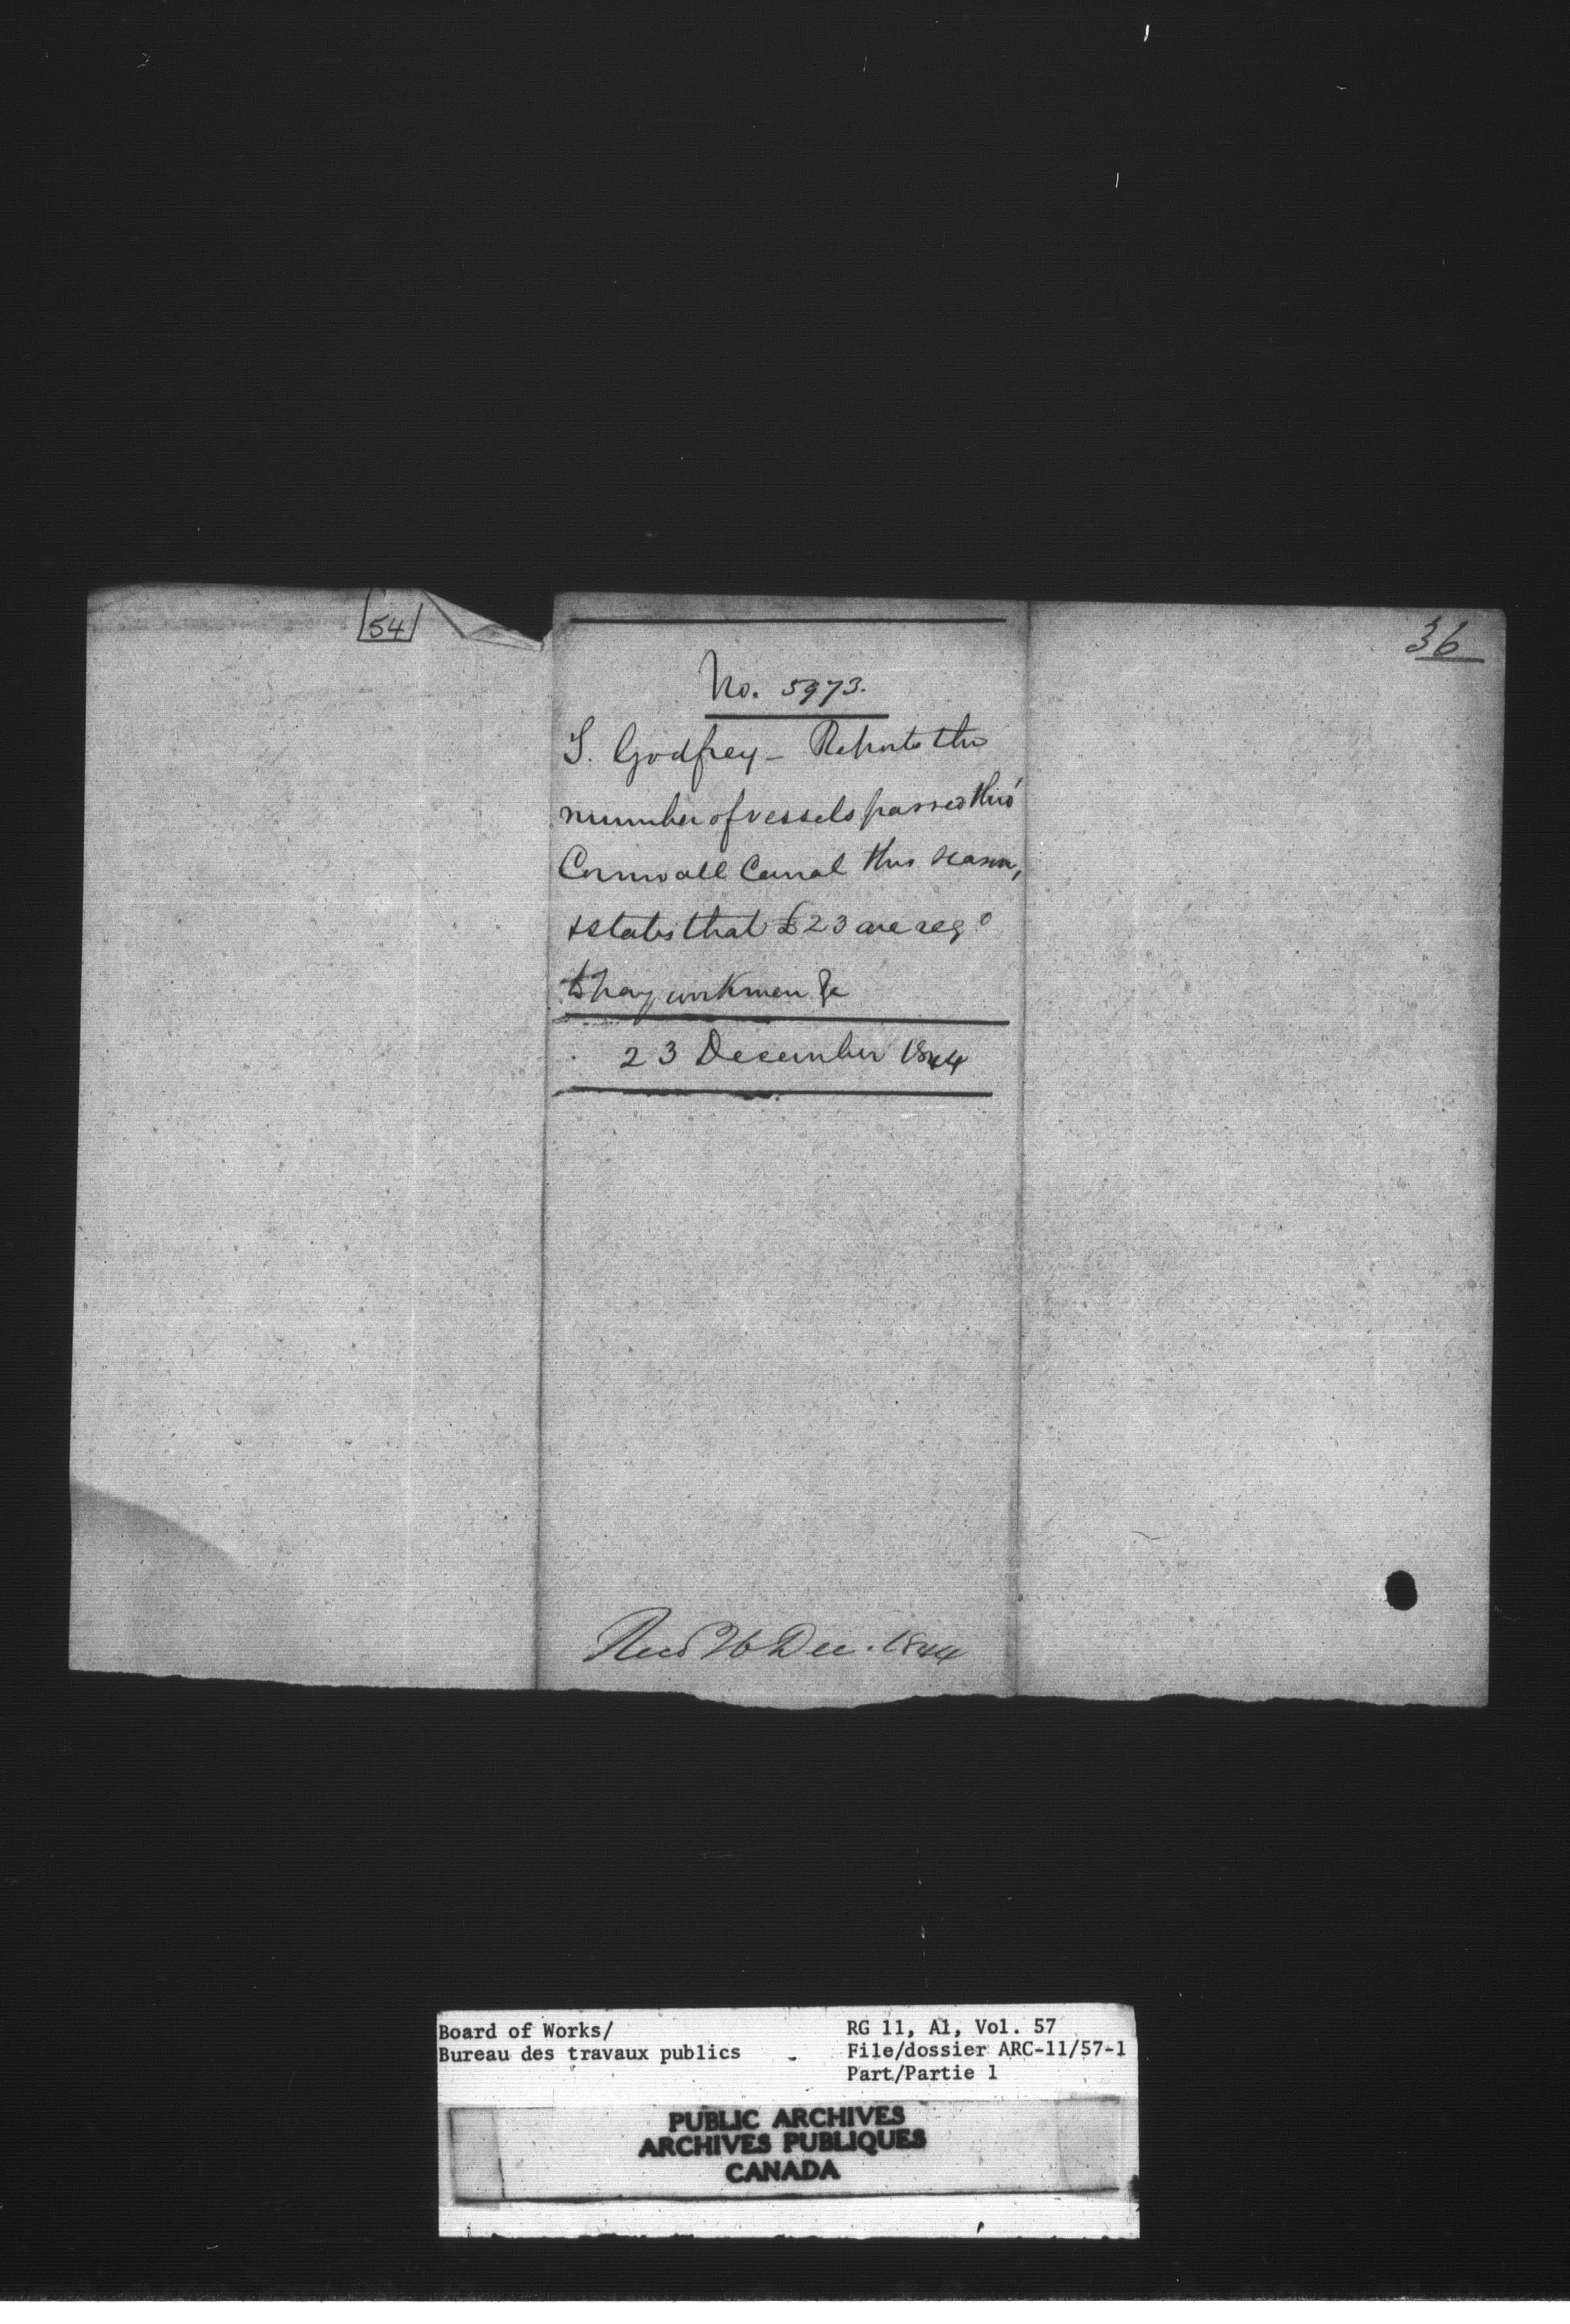 54
36
No. 5973.
S. Godfrey - Reports the
number of vessels passed thro'
Cornwall Canal this season,
& states that £23 are reqd
to pay workmen &c
23 December 1844
Recd 26 Dec. 1844
Board of Works/
Bureau des travaux publics
RG 11, A1, Vol. 57
File/dossier ARC-11/57-1
Part/Partie 1
PUBLIC ARCHIVES
ARCHIVES PUBLIQUES
CANADA